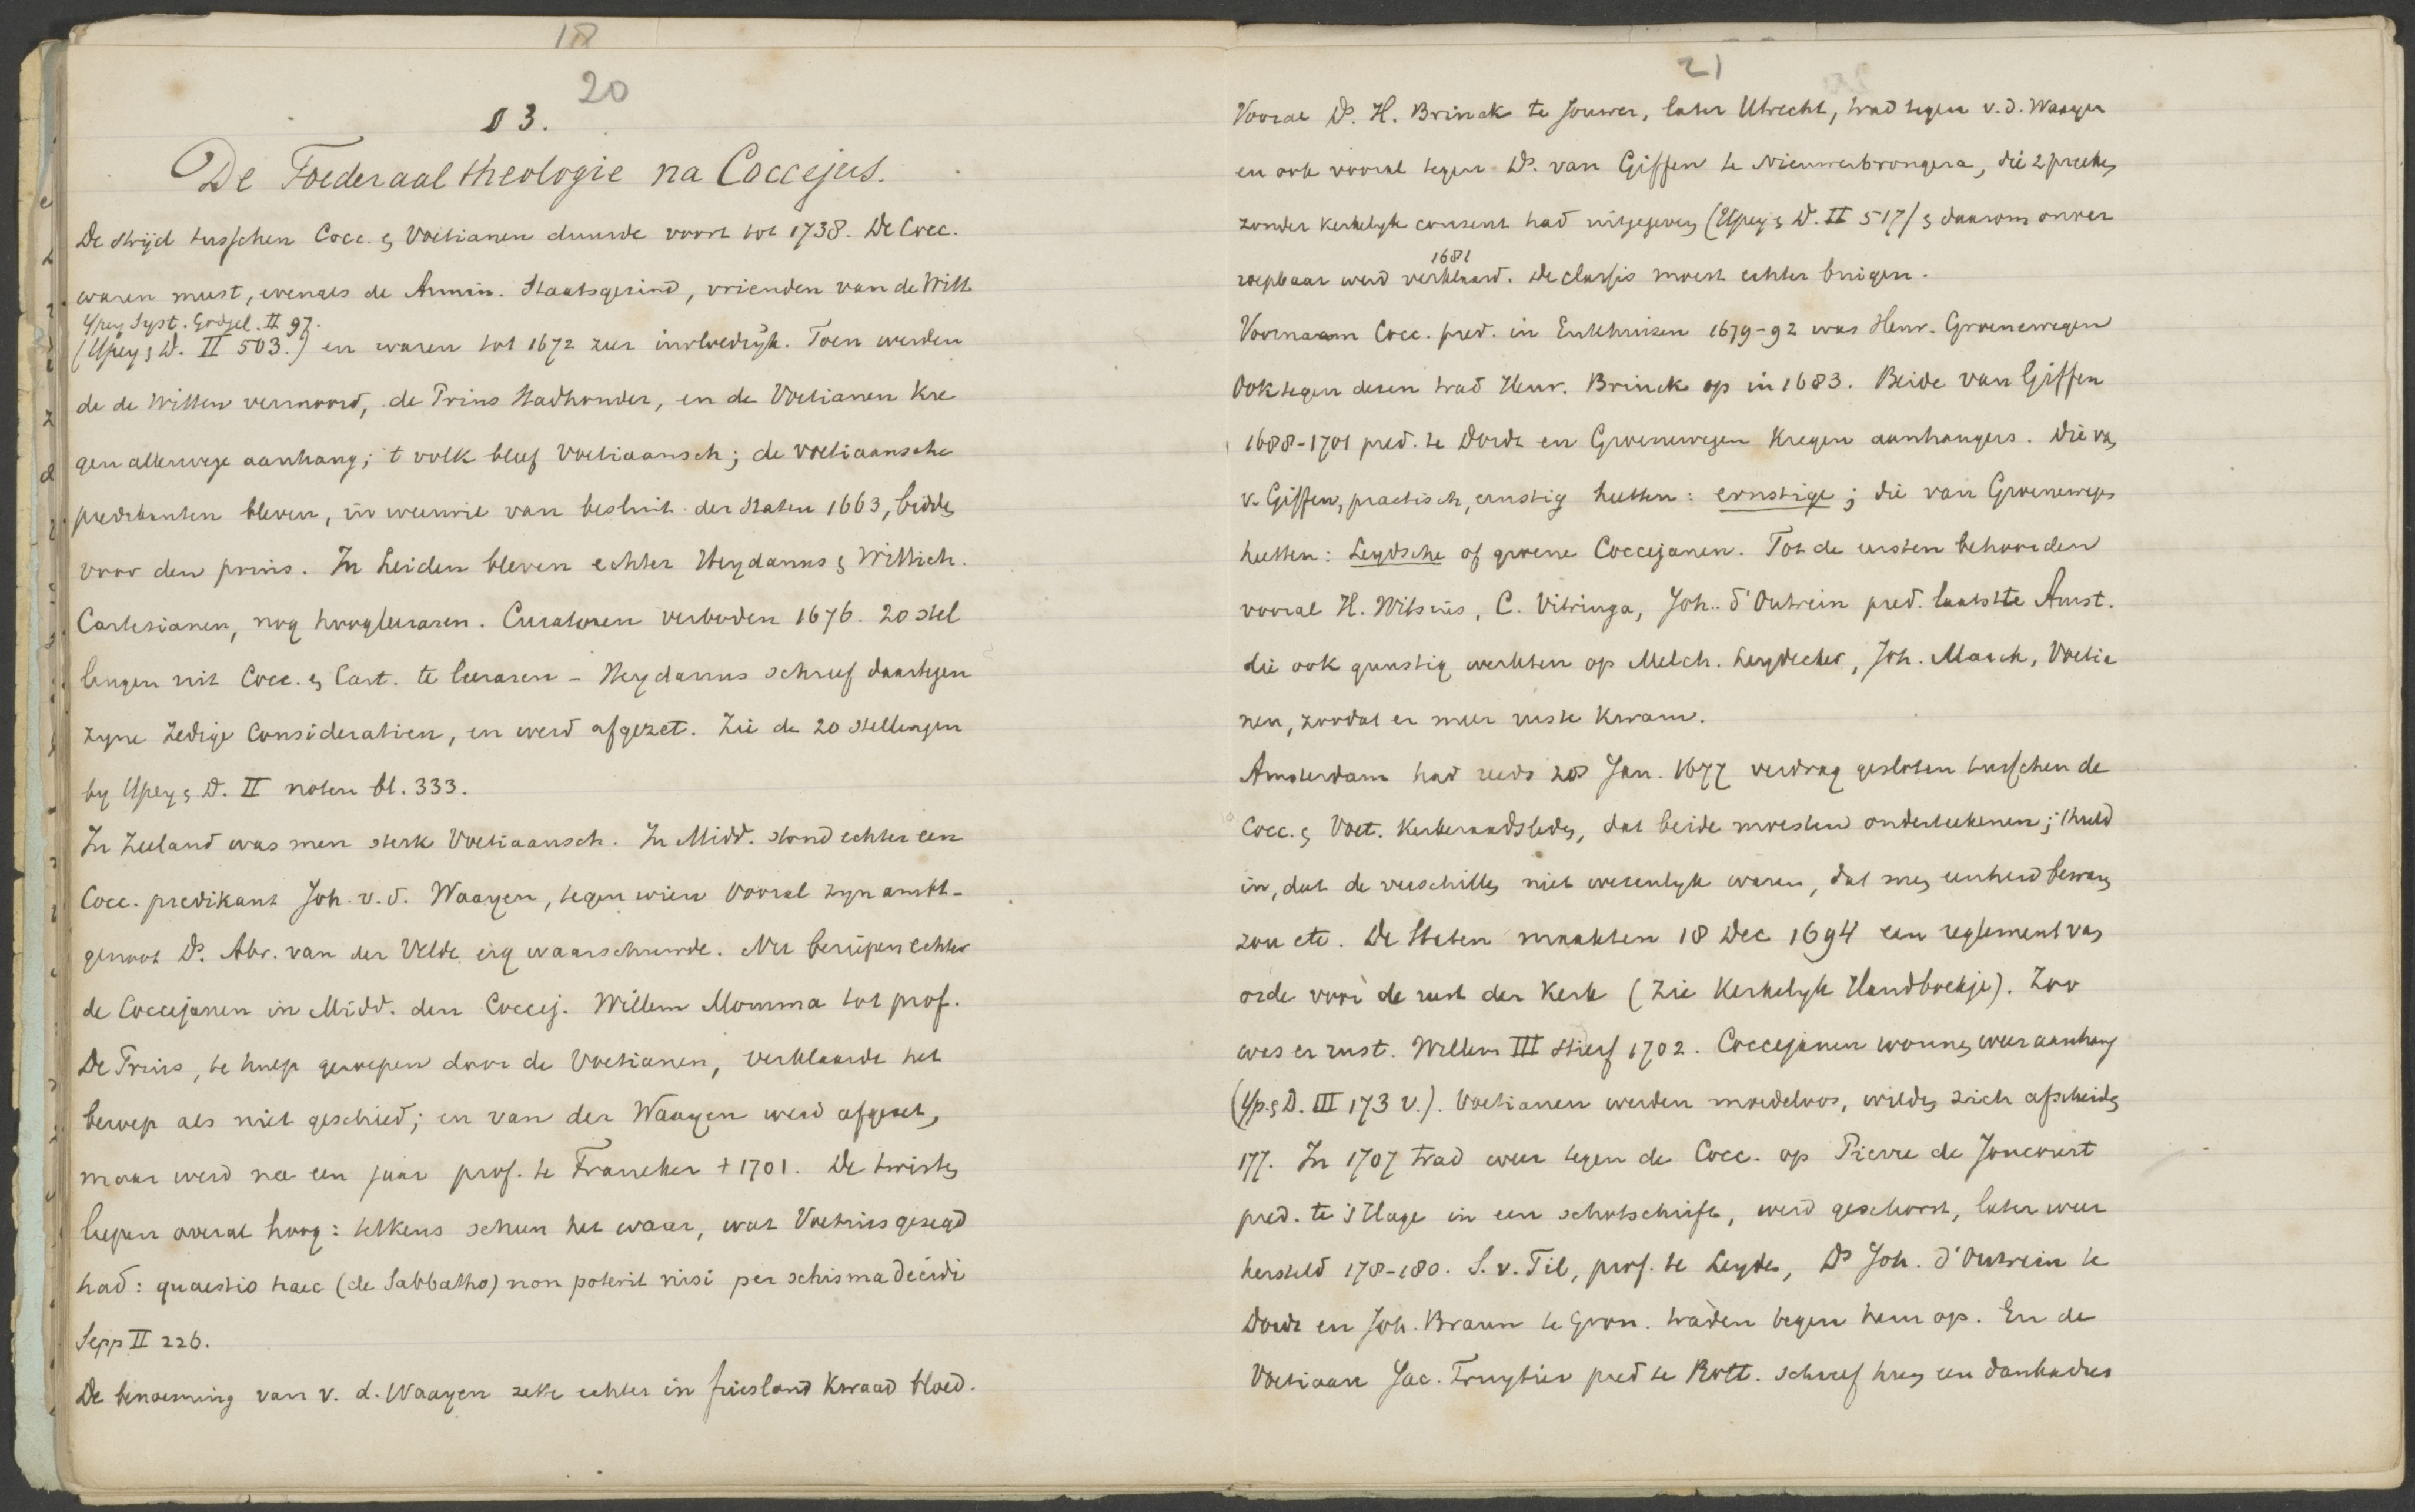 18
20
§ 3.
De Foederaal theologie na Coccejus.
De strijd tusschen Cocc. & Voetianen duurde voort tot 1738. De Cocc.
waren meest, evenals de Armin. Staatsgezind, vrienden van de Witt
Ypey Syst. Godgel. II 97.
(Ypey & D. II 503.) en waren tot 1672 zeer invloedrijk. Toen werden
de de Witten vermoord, de Prins Stadhouder, en de Voetianen kre
gen allerwege aanhang; 't volk bleef Voetiaansch; de voetiaansche
predikanten bleven, in weerwil van besluit der Staten 1663, bidden
voor den prins. In Leiden bleven echter Heydanus & Wittich.
Cartesianen, nog hoogleeraren. Curatoren verboden 1676. 20 stel
lingen uit Cocc. & Cart. te leeraren - Heydanus schreef daartegen
zyne Zedige Consideratien, en werd afgezet. Zie de 20 stellingen
by Ypey & D. II noten bl. 333.
In Zeeland was men sterk Voetiaansch. In Midd. stond echter een
Cocc. predikant Joh. v. d. Waayen, tegen wien vooral zyn ambt-
genoot Ds. Abr. van der Velde erg waarschuwde. Nu beriepen echter
de Coccejanen in Midd. den Coccej. Willem Momma tot prof.
De Prins, te hulp geroepen door de Voetianen, verklaarde het
beroep als niet geschied; en van der Waayen werd afgezet,
maar werd na een jaar prof. te Franeker † 1701. De twisten
liepen overal hoog: telkens scheen het waar, wat Voetius gezegd
had: quaestio haec (de Sabbatho) non poterit nisi per schisma decidi
Sepp II 226.
De benoeming van v. d. Waayen zette echter in friesland kwaad bloed.
21
Vooral Ds. H. Brinck te Jouwer, later Utrecht, trad tegen v. d. Waayen
en ook vooral tegen Ds. van Giffen te Nieuwerbrongera, die 2 preeken
zonder kerkelyk consent had uitgegeven (Ypey & D. II 517) & daarom onver
1681
roepbaar werd verklaard. De classis moest echter buigen.
Voornaam Cocc. pred. in Enkhuizen 1679-92 was Henr. Groenewegen
Ook tegen dezen trad Henr. Brinck op in 1683. Beide van Giffen
1688-1701 pred. te Dordt en Groenewegen kregen aanhangers. Die van
v. Giffen, practisch, ernstig heetten: ernstige; die van Groenewegen
heetten: Leydsche of groene Coccejanen. Tot de eersten behoorden
vooral H. Witsius, C. Vitringa, Joh. d'Outrein pred. laatste Amst.
die ook gunstig werkten op Melch. Leydecker, Joh. Marck, Voetia
nen, zoodat er meer ruste kwam.
Amsterdam had reeds 20 Jan. 1677 verdrag gesloten tusschen de
Cocc. & Voet. Kerkeraadsleden, dat beide moesten onderteekenen; 't hield
in, dat de verschillen niet wezenlyk waren, dat men eenheid bewaren
zou etc. De Staten maakten 18 Dec 1694 een reglement van
orde voor de rust der Kerk (Zie Kerkelyk Handboekje). Zoo
was er rust. Willem III stierf 1702. Coccejanen wonnen weer aanhang
(Yp. & D. III 173 v.). Voetianen werden moedeloos, wilden zich afscheiden
177. In 1707 trad weer tegen de Cocc. op Pierre de Joncourt
pred. te 's Hage in een schotschrift, werd geschorst, later weer
hersteld 178-180. S. v. Til, prof. te Leyden, Ds Joh. d'Outrein te
Dordt en Joh. Braun te Gron. traden tegen hem op. En de
Voetiaan Jac. Fruytier pred te Rott. schreef hem een dankadres